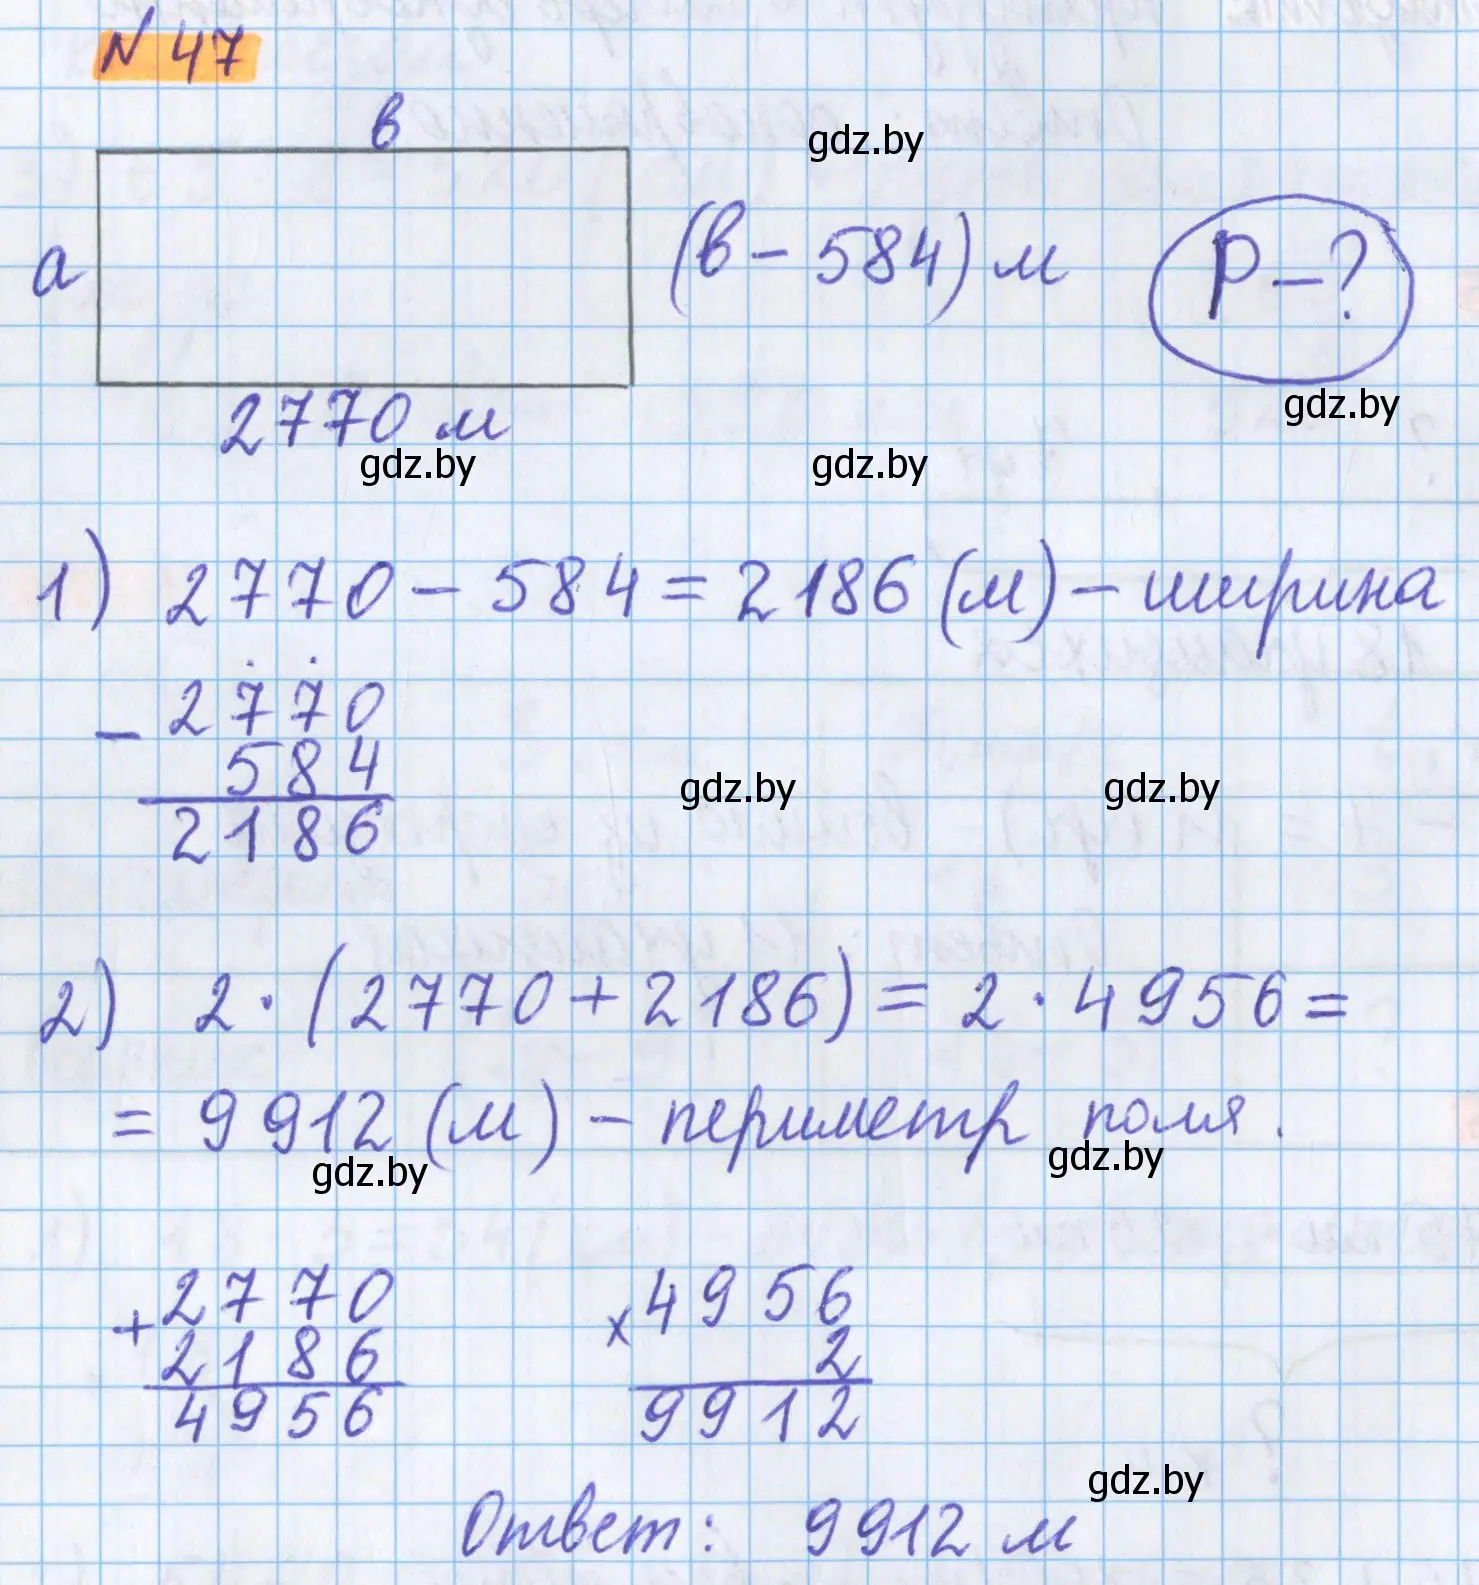 N 47
в
gdz.by
а
(в - 584) м
P - ?
gdz.by
2770 м
gdz.by
gdz.by
1) 2770 - 584 = 2186 (м) - ширина
- 2770
584
2186
gdz.by
gdz.by
2) 2 · (2770 + 2186) = 2 · 4956 =
= 9912 (м) - периметр поля.
gdz.by
gdz.by
+ 2770
2186
4956
x 4956
2
9912
gdz.by
Ответ: 9912 м